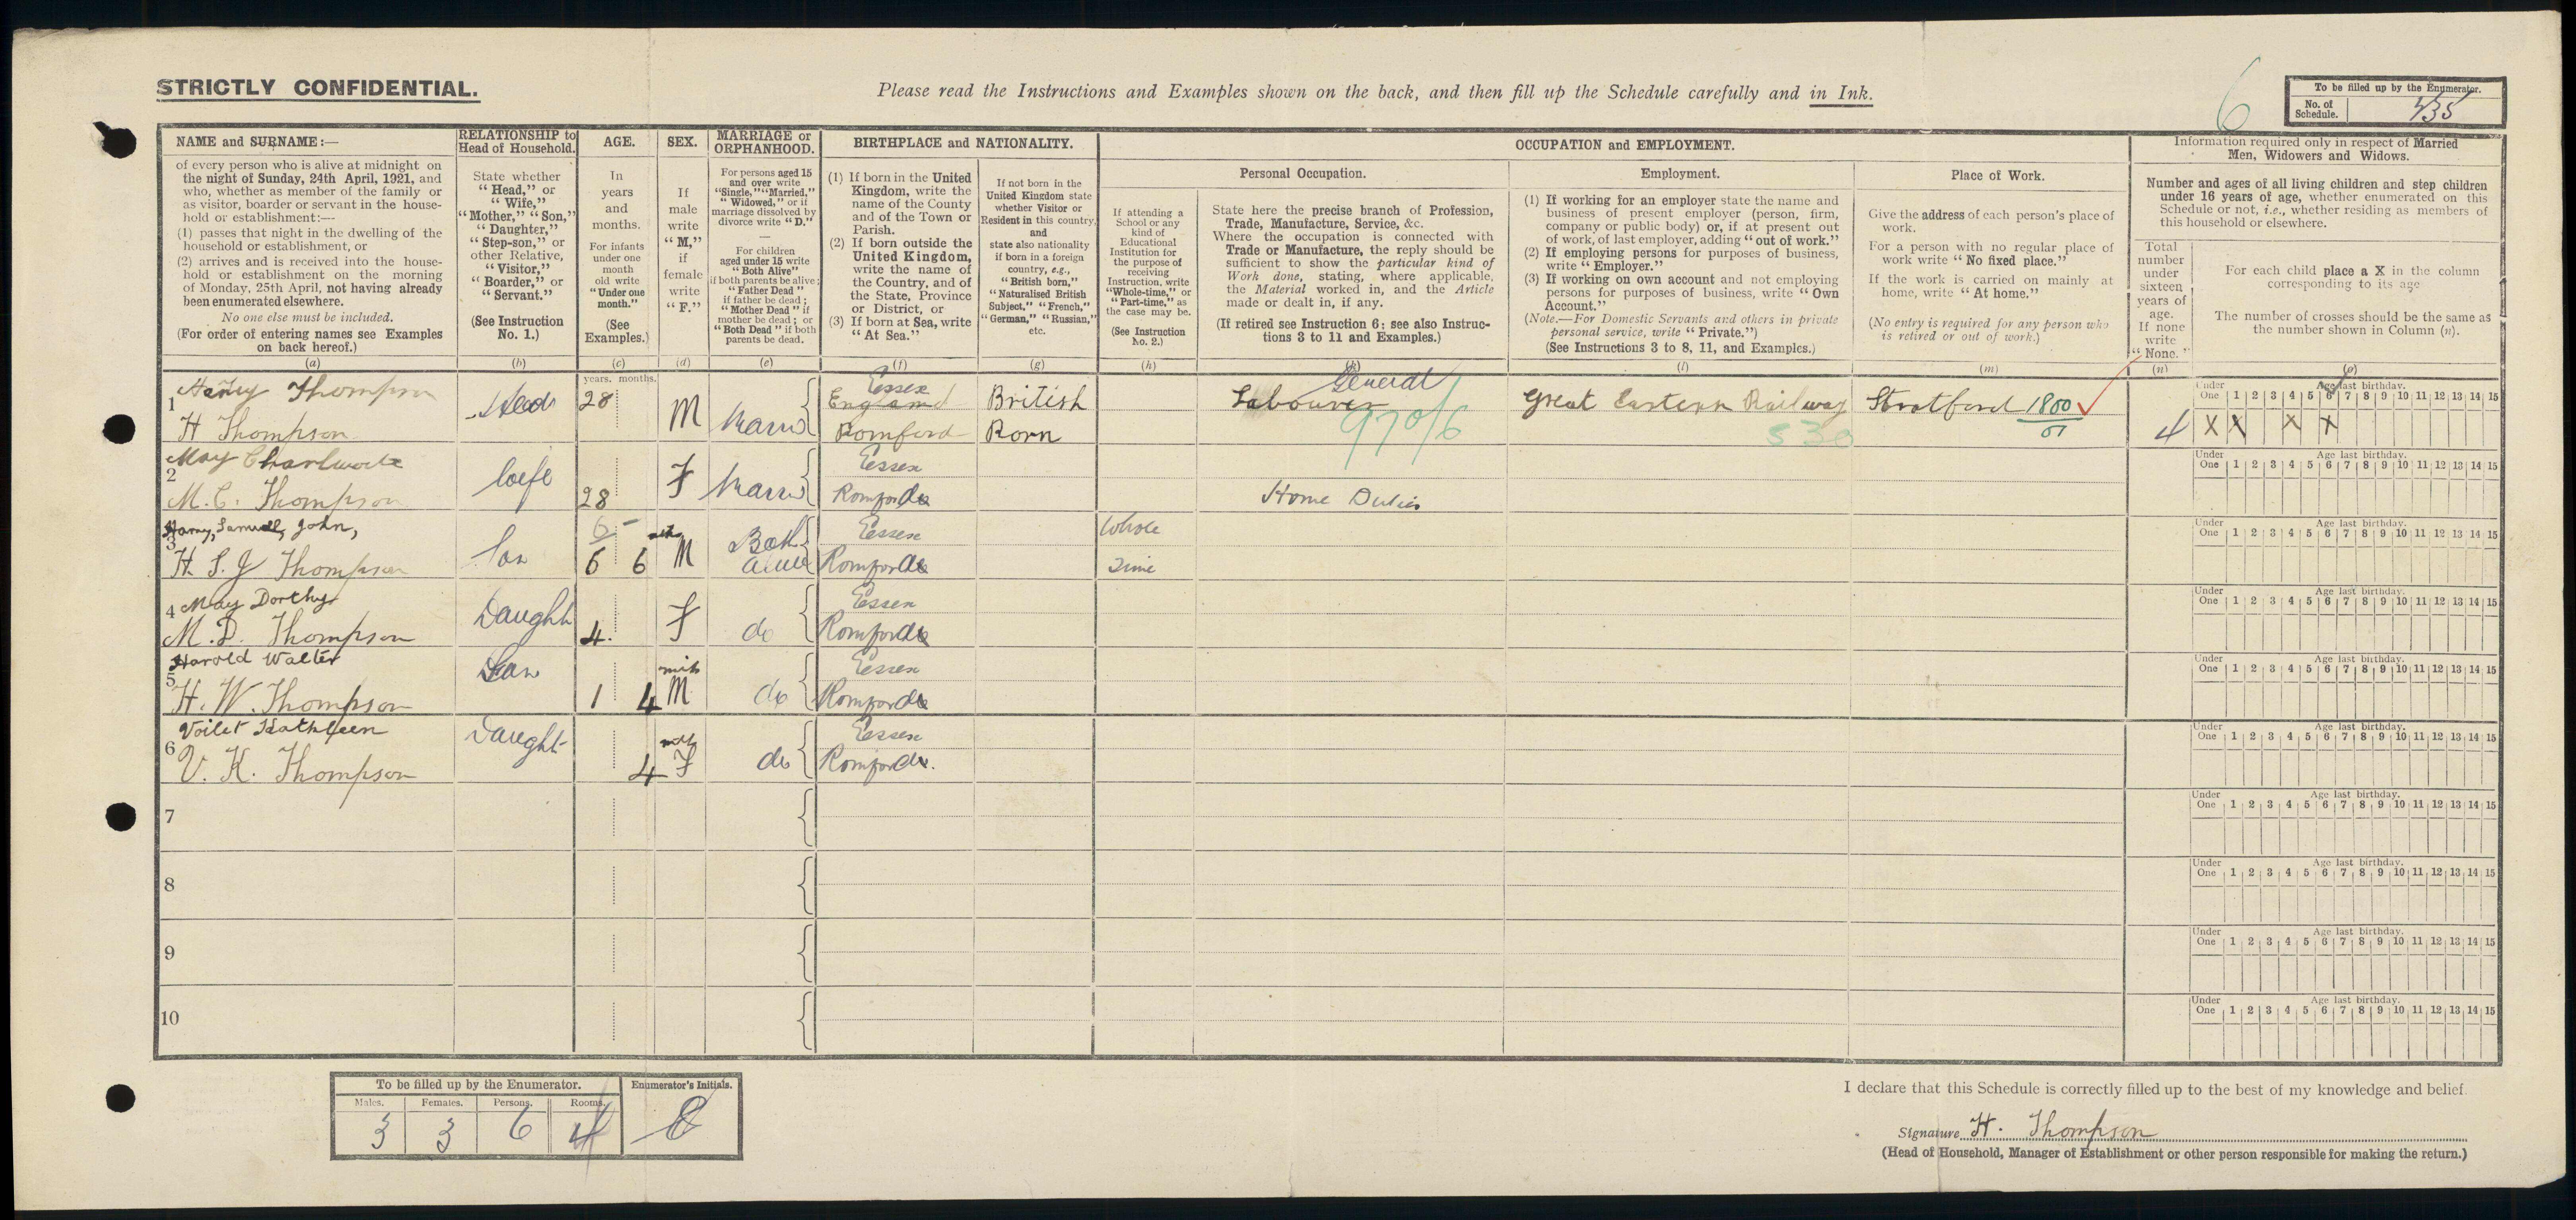 STRICTLY CONFIDENTIAL.
Please read the Instructions and Examples shown on the back, and then fill up the Schedule carefully and in Ink.
6
To be filled up by the Enumerator.
No. of Schedule.
NAME and SURNAME:—
of every person who is alive at midnight on
the night of Sunday, 24th April, 1921, and
who, whether as member of the family or
as visitor, boarder or servant in the house-
hold or establishment:—
(1) passes that night in the dwelling of the
household or establishment, or
(2) arrives and is received into the house-
hold or establishment on the morning
of Monday, 25th April, not having already
been enumerated elsewhere.
No one else must be included.
(For order of entering names see Examples
on back hereof.)
(a)
RELATIONSHIP to
Head of Household.
State whether
"Head," or
"Wife,"
"Mother," "Son,"
"Daughter,"
"Step-son," or
other Relative,
"Visitor,"
"Boarder," or
"Servant."
(See Instruction
No. 1.)
(b)
AGE.
In
years
and
months.
For infants
under one
month
old write
"Under one
month."
(See
Examples.)
(c)
years. months.
SEX.
If
male
write
"M,"
if
female
write
"F."
(d)
MARRIAGE or
ORPHANHOOD.
For persons aged 15
and over write
"Single," "Married,"
"Widowed," or if
marriage dissolved by
divorce write "D."
For children
aged under 15 write
"Both Alive"
if both parents be alive;
"Father Dead"
if father be dead;
"Mother Dead" if
mother be dead; or
"Both Dead" if both
parents be dead.
(e)
BIRTHPLACE and NATIONALITY.
(1) If born in the United
Kingdom, write the
name of the County
and of the Town or
Parish.
(2) If born outside the
United Kingdom,
write the name of
the Country, and of
the State, Province
or District, or
(3) If born at Sea, write
"At Sea."
(f)
If not born in the
United Kingdom state
whether Visitor or
Resident in this country,
and
state also nationality
if born in a foreign
country, e.g.,
"British born,"
"Naturalised British
Subject," "French,"
"German," "Russian,"
etc.
(g)
OCCUPATION and EMPLOYMENT.
If attending a
School or any
kind of
Educational
Institution for
the purpose of
receiving
Instruction, write
"Whole-time," or
"Part-time," as
the case may be.
(See Instruction
No. 2.)
(h)
Personal Occupation.
State here the precise branch of Profession,
Trade, Manufacture, Service, &c.
Where the occupation is connected with
Trade or Manufacture, the reply should be
sufficient to show the particular kind of
Work done, stating, where applicable,
the Material worked in, and the Article
made or dealt in, if any.
(If retired see Instruction 6: see also Instruc-
tions 3 to 11 and Examples.)
(k)
Employment.
(1) If working for an employer state the name and
business of present employer (person, firm,
company or public body) or, if at present out
of work, of last employer, adding "out of work."
(2) If employing persons for purposes of business,
write "Employer."
(3) If working on own account and not employing
persons for purposes of business, write "Own
Account."
(Note.—For Domestic Servants and others in private
personal service, write "Private.")
(See Instructions 3 to 8, 11, and Examples.)
(l)
Place of Work.
Give the address of each person's place of
work.
For a person with no regular place of
work write "No fixed place."
If the work is carried on mainly at
home, write "At home."
(No entry is required for any person who
is retired or out of work.)
(m)
Information required only in respect of Married
Men, Widowers and Widows.
Number and ages of all living children and step children
under 16 years of age, whether enumerated on this
Schedule or not, i.e., whether residing as members of
this household or elsewhere.
Total
number
under
sixteen
years of
age.
If none
write
"None."
(n)
For each child place a X in the column
corresponding to its age
The number of crosses should be the same as
the number shown in Column (n).
(o)
Under One 1 2 3 4 5 6 7 8 9 10 11 12 13 14 15
Age last birthday.
1 Harry Thompson
H Thompson
Head 28 M Married
Essex
England
Romford
British
Born
General
Labourer
970/6
Great Eastern Railway
530
Stratford 1800
01
4 X X X X
2 May Charlwode
M. C. Thompson
Wife 28 F Married
Essex
Romford
Home Duties
Under One 1 2 3 4 5 6 7 8 9 10 11 12 13 14 15
Age last birthday.
3 Harry, Samuel, John,
H. S. J Thompson
Son 6 -
5 6 mths M Both
alive
Essex
Romford
Whole
Time
Under One 1 2 3 4 5 6 7 8 9 10 11 12 13 14 15
Age last birthday.
4 May Dorthy
M. D. Thompson
Daught 4. F do
Essex
Romford
Under One 1 2 3 4 5 6 7 8 9 10 11 12 13 14 15
Age last birthday.
5 Harold Walter
H. W. Thompson
Son 1 4 mths M do
Essex
Romford
Under One 1 2 3 4 5 6 7 8 9 10 11 12 13 14 15
Age last birthday.
6 Voilet Kathleen
V. K. Thompson
Daught 4 mths F do
Essex
Romford
Under One 1 2 3 4 5 6 7 8 9 10 11 12 13 14 15
Age last birthday.
7
Under One 1 2 3 4 5 6 7 8 9 10 11 12 13 14 15
Age last birthday.
8
Under One 1 2 3 4 5 6 7 8 9 10 11 12 13 14 15
Age last birthday.
9
Under One 1 2 3 4 5 6 7 8 9 10 11 12 13 14 15
Age last birthday.
10
Under One 1 2 3 4 5 6 7 8 9 10 11 12 13 14 15
Age last birthday.
To be filled up by the Enumerator.
Enumerator's Initials.
Males. Females. Persons. Rooms.
3 3 6 4
I declare that this Schedule is correctly filled up to the best of my knowledge and belief.
Signature H. Thompson
(Head of Household, Manager of Establishment or other person responsible for making the return.)